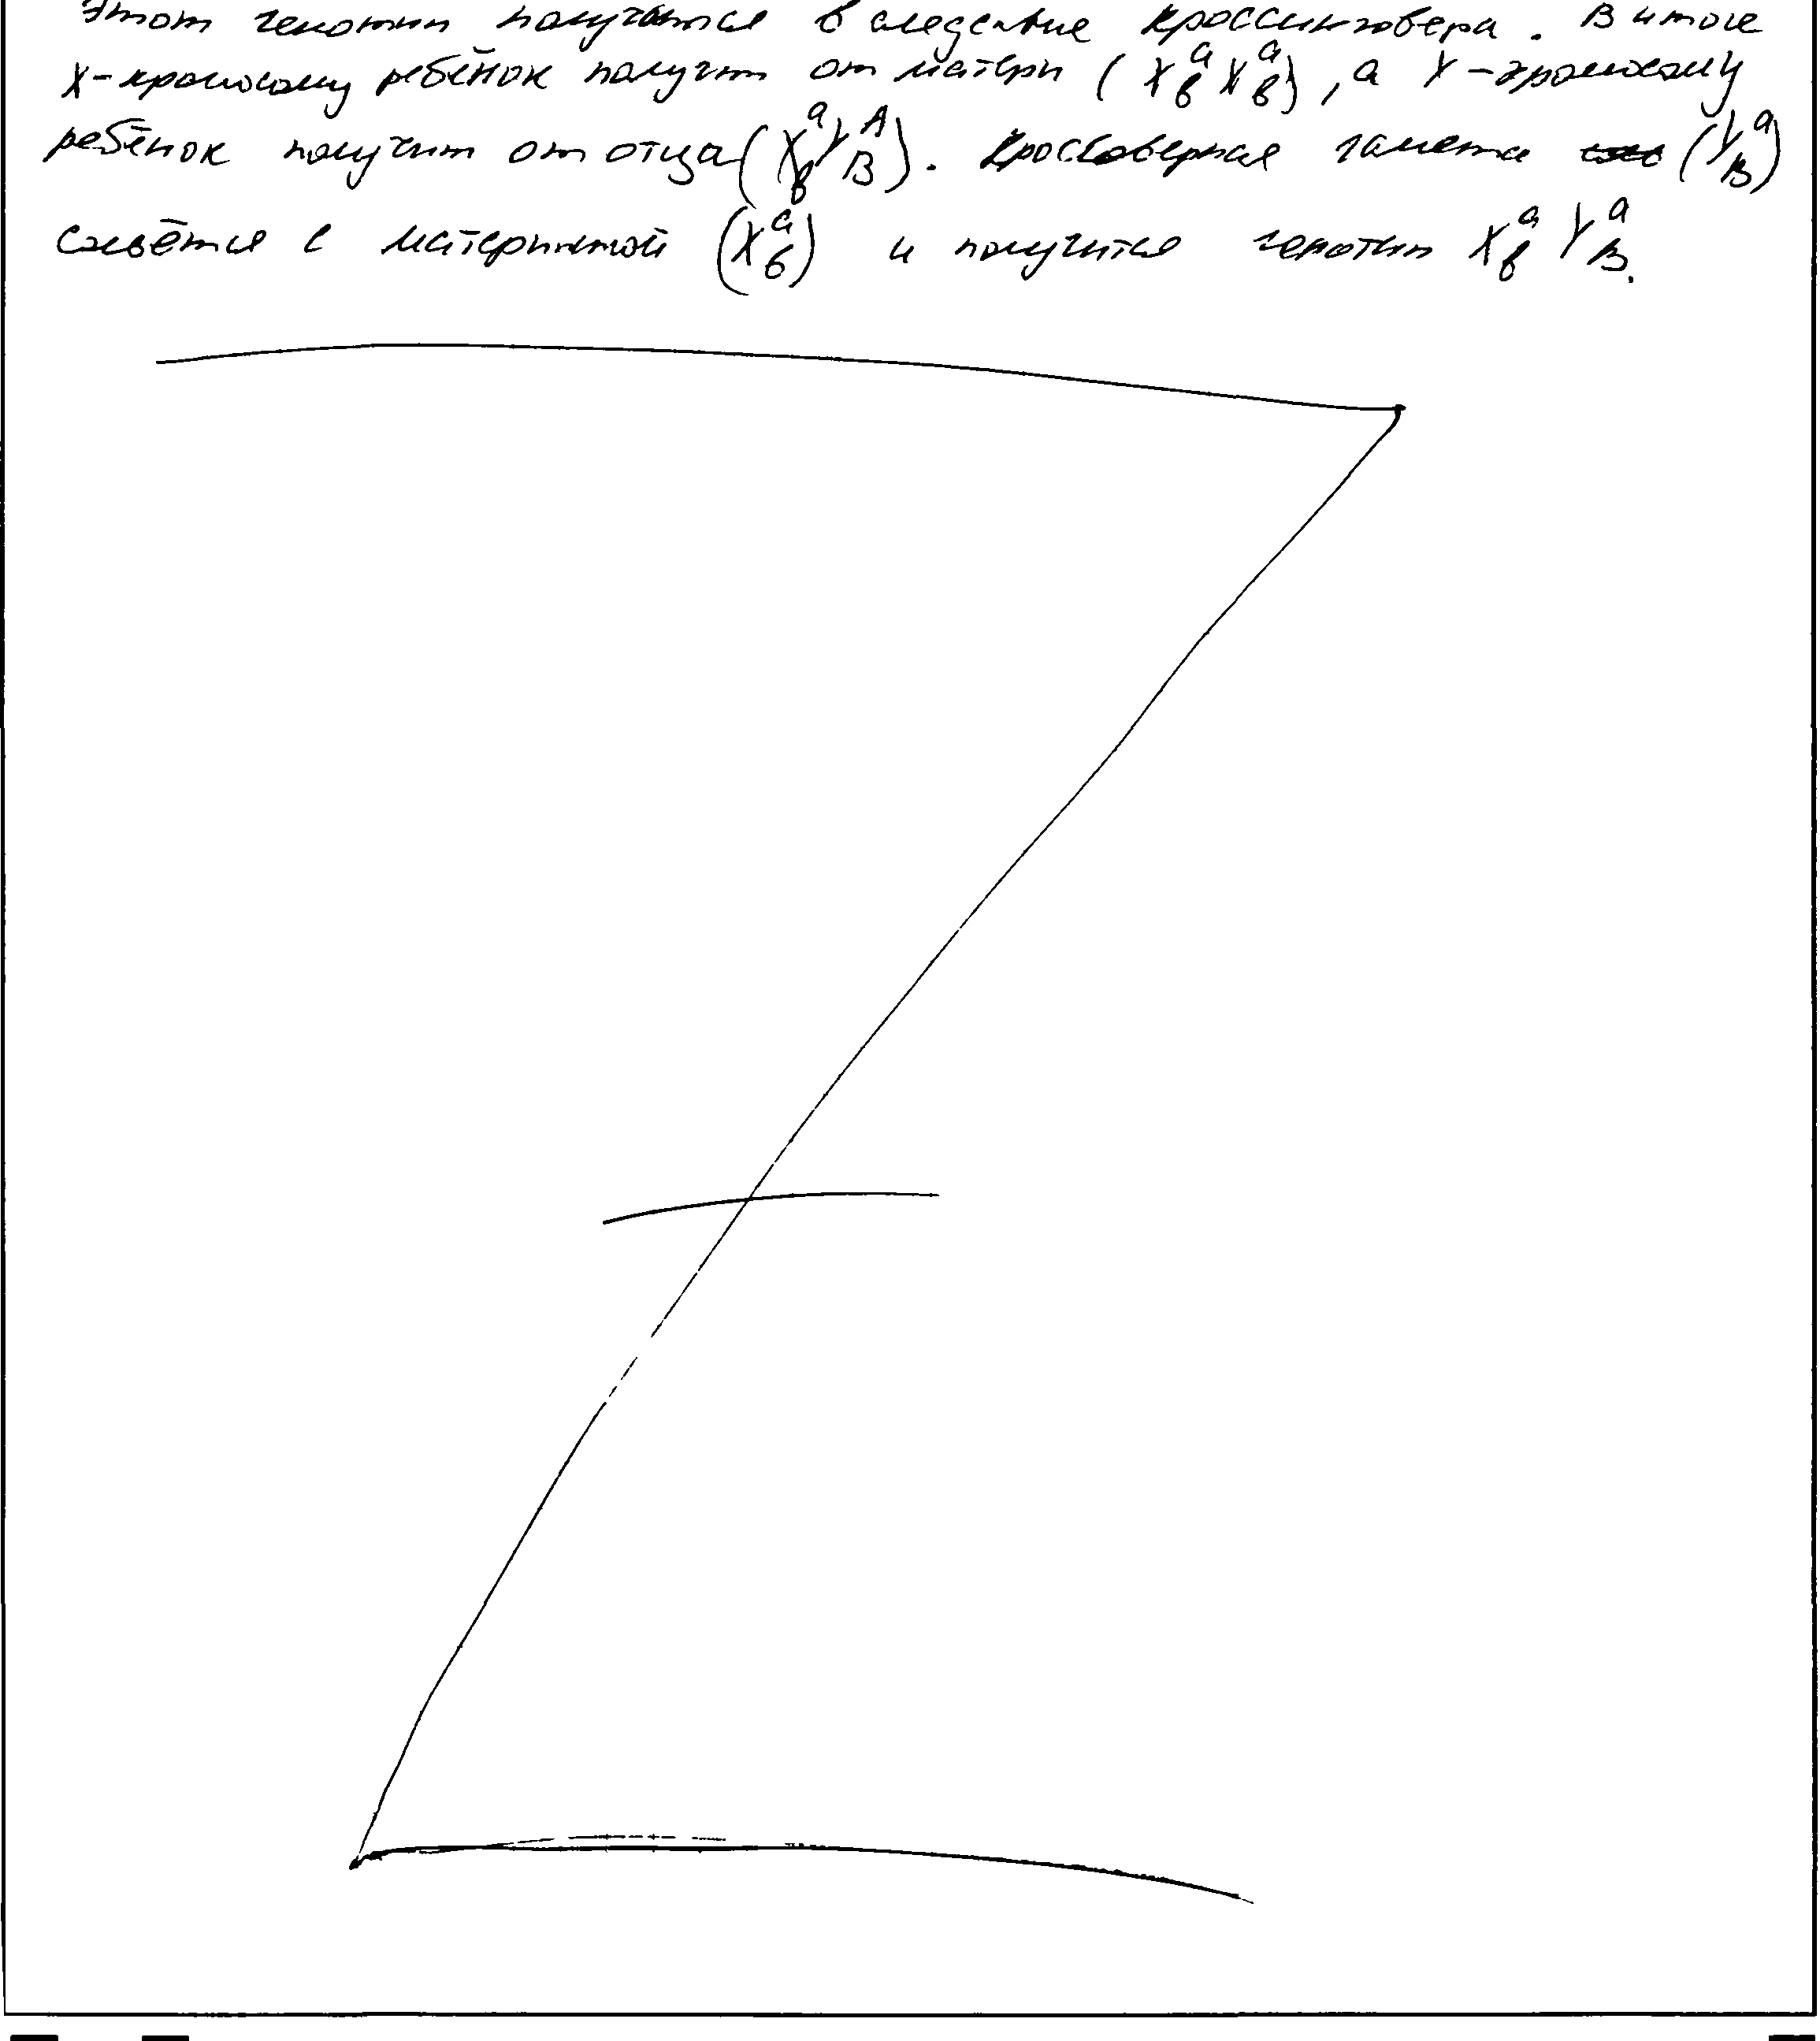 Этот генотип получается в следствие кроссинговера. В итоге
X-хромосому ребёнок получит от матери (XᵃᵦXᵃᵦ), а Y-хромосому
ребёнок получит от отца (XᵃᵦYᴬB). Кроссоверная гамета (YᵃB)
сольётся с материнской (Xᵃб) и получится генотип XᵃᵦYᵃB.